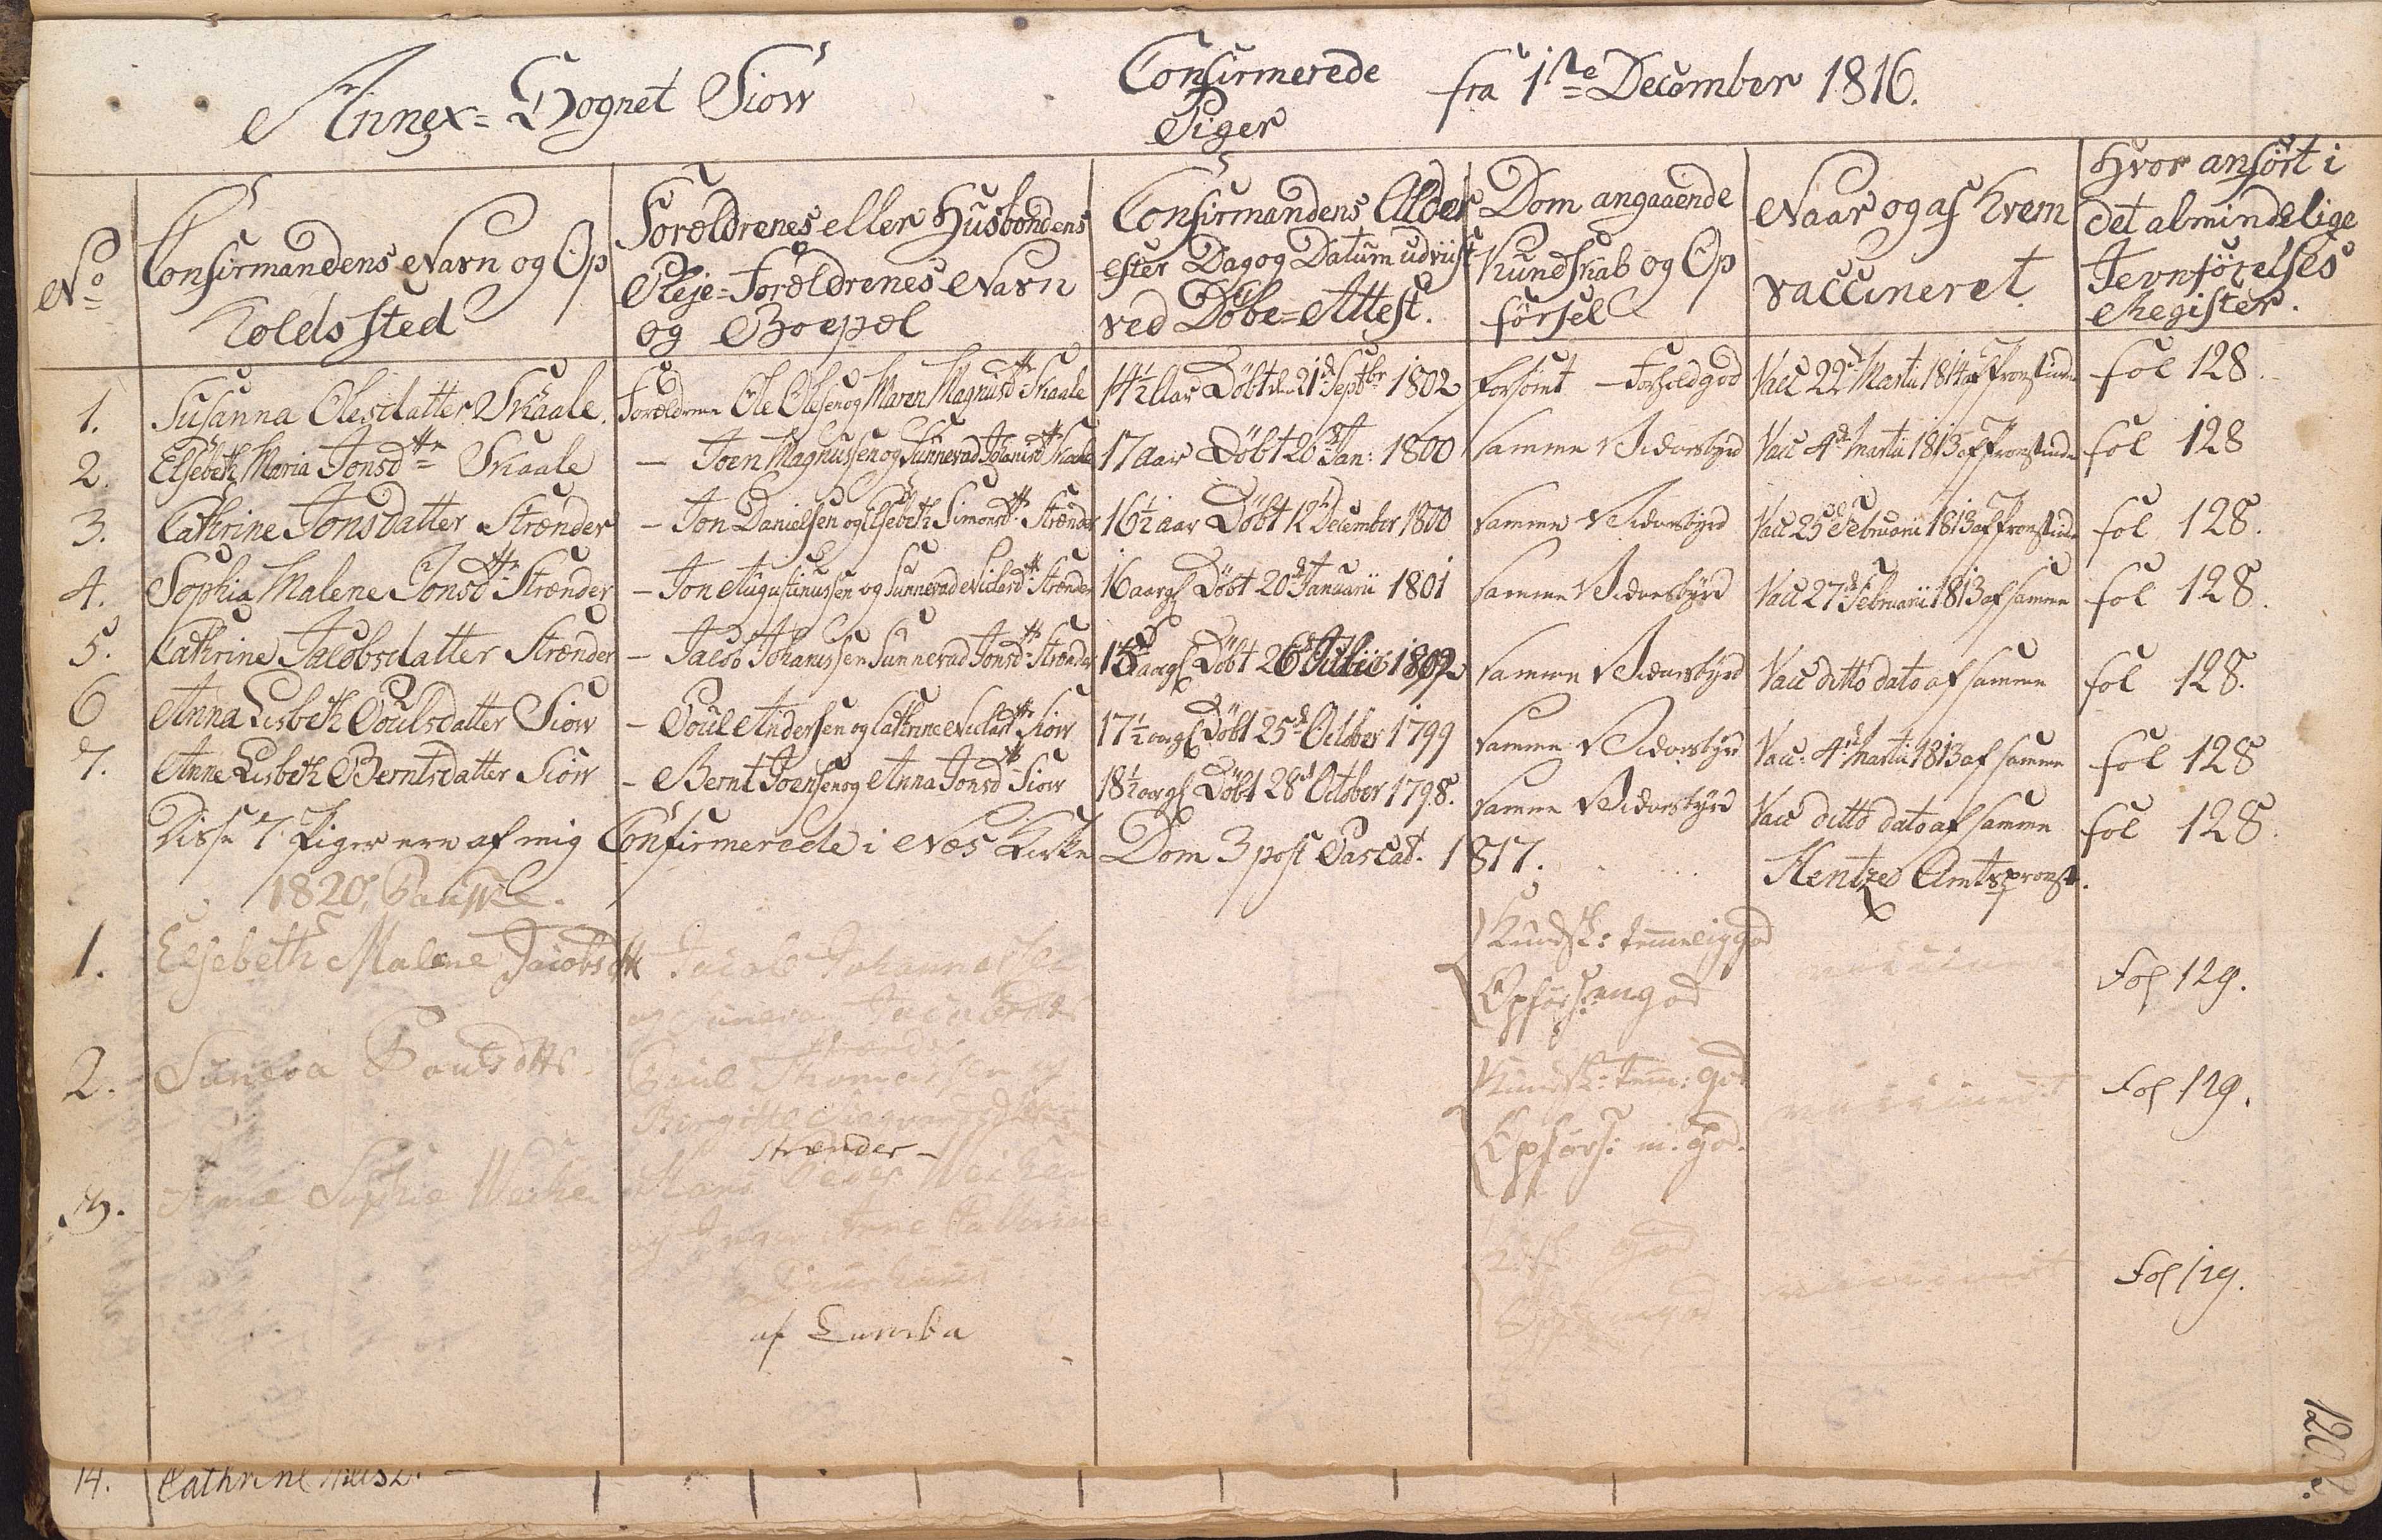 Annex= Sognet Siow Confirmerede fra 1ste December 1816.
Piger
No
Confirmandens Navn og Op
holds sted
Forældrenes eller Husbondens
Pleje=Forældrenes Navn
og Boepæl
Confirmandens Alder
efter Dag og Datum udviist
ved Döbe=Attest.
Dom angaaende
Kundskab og Op
försel
Naar og af hvem
vaccineret
Hvor anfört i
det almindelige
Jevnförelses
Register.
1. Susanna Olesdatter Skaale. Forældrene Ole Olesen og Maren Magnusdttr Skaale 14½ Aar Döbt den 21d Septbr 1802 forsömt - Forhold god Vacc 22d Martii 1814 af Provstinden fol 128.
2. Elsebeth Maria Jonsdttr Skaale - Joen Magnussen og Sunnevad Skaale 17 aar Döbt 20d Jan: 1800 samme Vidnesbyrd Vacc 4d Martii 1813 af Provstinden fol 128
3. Cathrine Jonsdatter Strænder - Jon Danielsen og Elsebeth Simonsdttr Strænder 16½ aar Döbt 12d December 1800 samme Vidnesbyrd Vacc 25d Februarii 1813 af Provstinden fol 128.
4. Sophia Malene Jonsdttr Strænder - Jon Augustinussen og Sunnevad Strænder 16 aarg Döbt 20d Januarii 1801 samme Vidnesbyrd Vacc 27d Februarii 1813 af samme fol 128.
5. Cathrine Jacobsdatter Strænder - Jacob Johannessen Sunnevad Jonsdttr Strænder aarg Döbt samme Vidnesbyrd Vacc ditto dato af samme fol 128.
6 Anna Lisbeth Poulsdatter Siow - Poul Andersen og Cathrine Siow 17½ aarg Döbt 25d October 1799 samme Vidnesbyrd Vacc. 4d Martii 1813 af samme fol 128
7. Anne Lisbeth Berntsdatter Siow - Bernt Joensen og Anna Jonsdttr Siow 18½ aarg Döbt 28d October 1798. samme Vidnesbyrd Vacc ditto dato af samme fol 128.
Disse 7 Piger ere af mig Confirmerede i Næs Kirke Dom 3 post Pascat. 1817. Hentze Amtsprovst.
1820,
1. Elsebeth Malene Jacobsdtt Jacob Johannessen Kundsk: temmelig god Fol 129.
og Suneva Jacobsdtt Opförs: god
Strænder
2. Suneva Poulsdttr. Poul Thomassen og Kundsk: tem: god vaccineret Fol 129.
Birgitte Opförs: m. god.
Strænder -
3. Anne Sophie og god Fol 129.
Anne Cathrine
af Lamba
14. Cathrine